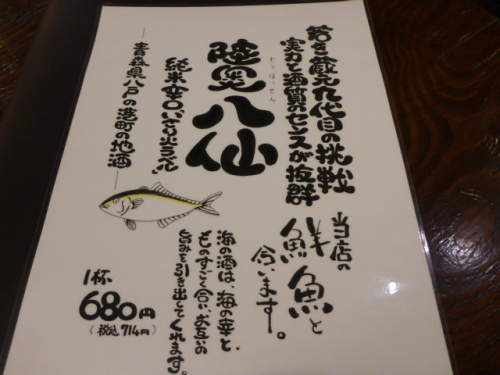 若き蔵元九代目の挑戦
実力と酒質のセンスが抜群
むつはっせん
陸奥八仙
純米辛口いさり火ラベル
青森県八戸の港町の地酒
当店の
鮮魚と
合います。
海の酒は、海の幸と、
ものすごく合い、お互いの
旨みを引き出してくれます。
1杯
680円
(税込714円)